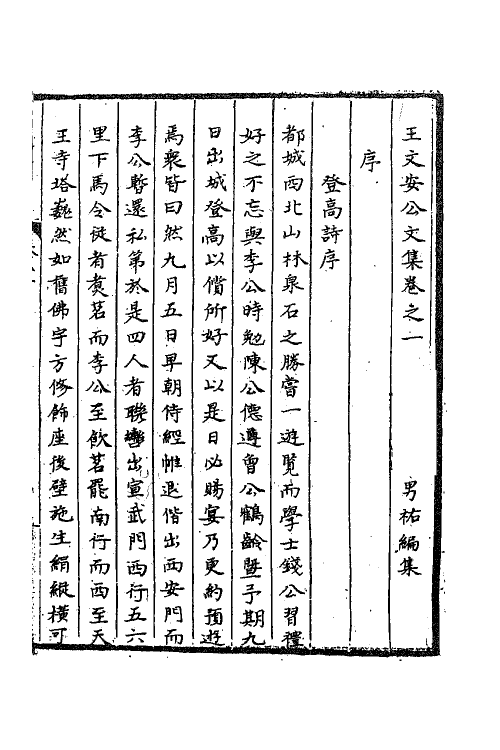 王文安公文集卷之一 男祐編集
序
登高詩序
都城西北山林泉石之勝嘗一遊覽而學士錢公習禮
好之不忘與李公時勉陳公德遵曾公鶴齡暨予期九
日出城登高以償所好又以是日必賜宴乃更約預遊
焉衆皆曰然九月五日早朝侍經帷退偕出西安門而
李公暫還私第於是四人者聯轡出宣武門西行五六
里下馬令從者煑茗而李公至飲茗罷南行而西至天
王寺塔巍然如舊佛宇方修飾座後壁施生絹縱橫可